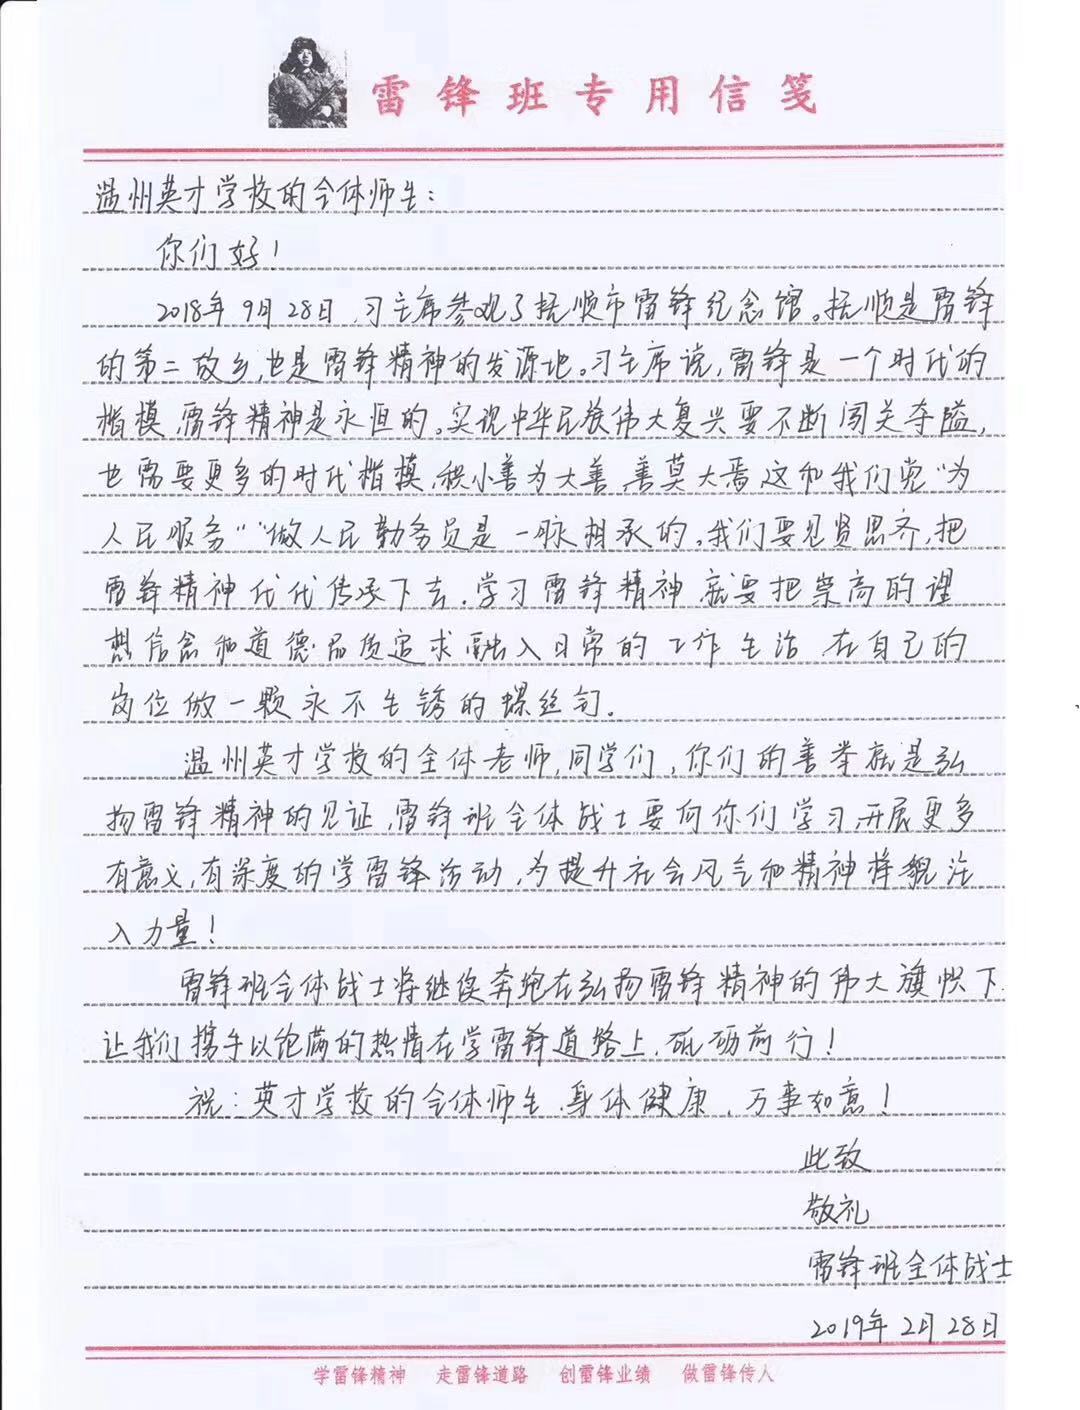 雷锋班专用信笺
温州英才学校的全体师生：
你们好！
2018年9月28日，习主席参观了抚顺市雷锋纪念馆。抚顺是雷锋
的第二故乡，也是雷锋精神的发源地。习主席说，雷锋是一个时代的
楷模，雷锋精神是永恒的。实现中华民族伟大复兴要不断闯关夺隘，
也需要更多的时代楷模，积小善为大善，善莫大焉，这和我们党“为
人民服务”“做人民勤务员是一脉相承的。我们要见贤思齐，把
雷锋精神代代传承下去。学习雷锋精神，就要把崇高的理
想信念和道德品质追求融入日常的工作生活，在自己的
岗位做一颗永不生锈的螺丝钉。
温州英才学校的全体老师，同学们，你们的善举就是弘
扬雷锋精神的见证，雷锋班全体战士要向你们学习，开展更多
有意义，有深度的学雷锋活动，为提升社会风气和精神样貌注
入力量！
雷锋班全体战士将继续奔跑在弘扬雷锋精神的伟大旗帜下，
让我们携手以饱满的热情在学雷锋道路上，砥砺前行！
祝：英才学校的全体师生，身体健康，万事如意！
此致
敬礼
雷锋班全体战士
2019年2月28日
学雷锋精神 走雷锋道路 创雷锋业绩 做雷锋传人